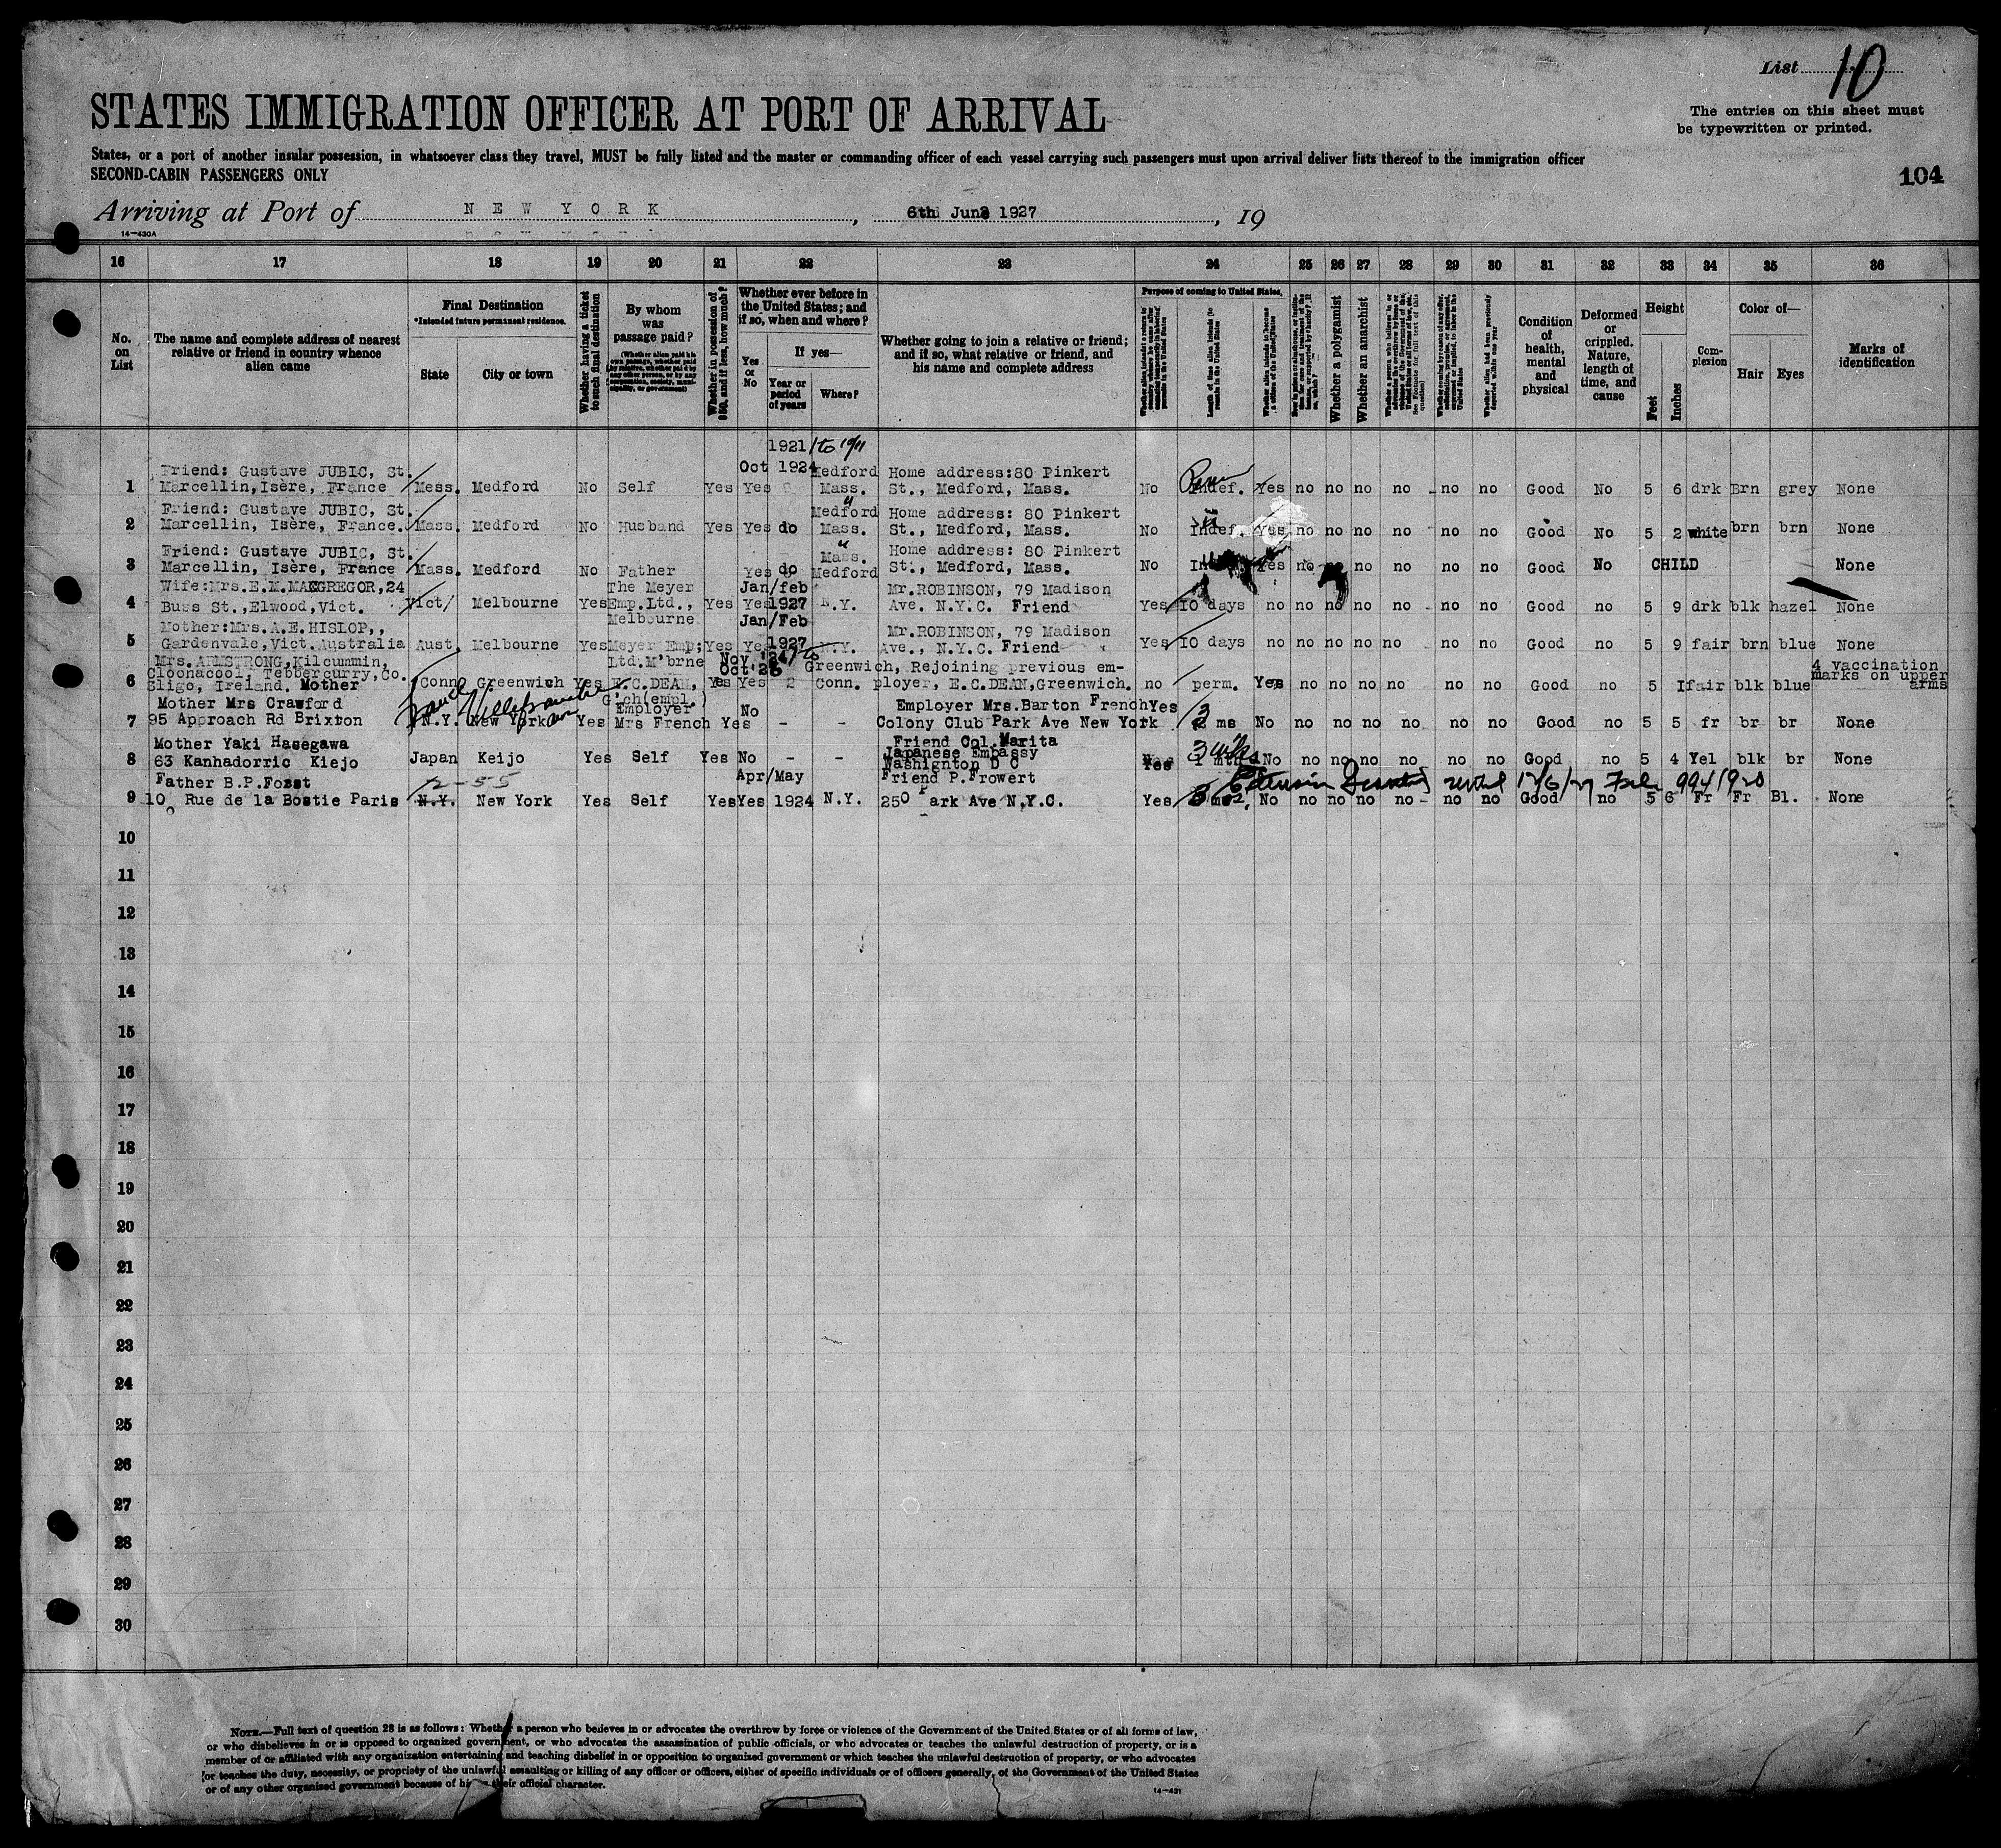 List 10
The entries on this sheet must
be typewritten or printed.
STATES IMMIGRATION OFFICER AT PORT OF ARRIVAL
States, or a port of another insular possession, in whatsoever class they travel, MUST be fully listed and the master or commanding officer of each vessel carrying such passengers must upon arrival deliver lists thereof to the immigration officer
SECOND-CABIN PASSENGERS ONLY
104
Arriving at Port of NEW YORK, 6th June 1927, 19
14-430A
16 17 18 19 20 21 22 23 24 25 26 27 28 29 30 31 32 33 34 35 36
No. on List
The name and complete address of nearest relative or friend in country whence alien came
Final Destination
*Intended future permanent residence.
State
City or town
Whether having a ticket to such final destination
By whom was passage paid?
(Whether alien paid his own passage, whether paid by relative, whether paid by any other person, or by any corporation, society, municipality, or government)
Whether in possession of $50, and if less, how much?
Whether ever before in the United States; and if so, when and where?
Yes or No
If yes—
Year or period of years
Where?
Whether going to join a relative or friend; and if so, what relative or friend, and his name and complete address
Purpose of coming to United States.
Whether a polygamist
Whether an anarchist
Condition of health, mental and physical
Deformed or crippled. Nature, length of time, and cause
Height
Feet
Inches
Complexion
Color of—
Hair
Eyes
Marks of identification
1921 to
Friend: Gustave JUBIC, St. Oct 1924 Medford Home address:80 Pinkert
1 Marcellin,Isère, France Mess. Medford No Self Yes Yes Mass. St., Medford, Mass. No Indef. Yes no no no no no no Good No 5 6 drk Brn grey None
Friend: Gustave JUBIC, St. Medford Home address: 80 Pinkert
2 Marcellin, Isère, France. Mass. Medford No Husband Yes Yes do Mass. St., Medford, Mass. No Indef. Yes no no no no no no Good No 5 2 white brn brn None
Friend: Gustave JUBIC, St. Mass. Home address: 80 Pinkert
3 Marcellin, Isère, France Mass. Medford No Father Yes do Medford St., Medford, Mass. No Yes no no no no no no Good No CHILD None
Wife:Mrs.E.M.MACGREGOR,24 The Meyer Jan/feb Mr.ROBINSON, 79 Madison
4 Buss St.,Elwood,Vict. Vict/ Melbourne Yes Emp.Ltd., Yes Yes 1927 N.Y. Ave. N.Y.C. Friend Yes 10 days no no no no no no no Good no 5 9 drk blk hazel None
Melbourne Jan/Feb
Mother:Mrs.A.E.HISLOP,, Mr.ROBINSON, 79 Madison
5 Gardenvale,Vict.Australia Aust. Melbourne Yes Meyer Emp; Yes Yes 1927 N.Y. Ave., N.Y.C. Friend Yes 10 days no no no no no no no Good no 5 9 fair brn blue None
Mrs. ARMSTRONG,Kilcummin, Ltd.M'brne Nov '24 to
Cloonacool, Tebbercurry,Co. Oct'26 Greenwich, Rejoining previous em- 4 vaccination
6 Sligo, Ireland. Mother Conn Greenwich Yes E.C.DEAN, Yes Yes 2 Conn. ployer, E.C.DEAN,Greenwich. no perm. Yes no no no no no no Good no 5 1 fair blk blue marks on upper arms
G'ch(empl.)
France Villefranche
Mother Mrs Crawford Employer No Employer Mrs.Barton French Yes
7 95 Approach Rd Brixton N.Y. New York Yes Mrs French Yes - - Colony Club Park Ave New York 3 ms No no no no no no no Good no 5 5 fr br br None
Mother Yaki Hasegawa Friend Col.Marita
8 63 Kanhadorric Kiejo Japan Keijo Yes Self Yes No - - Japanese Embassy Washignton D C Yes 3 wks 1 mth No no no no no no no Good no 5 4 Yel blk br None
12-55
Father B.P.Fozst Apr/May Friend P.Frowert
9 10 Rue de la Bostie Paris N.Y. New York Yes Self Yes Yes 1924 N.Y. 250 Park Ave N.Y.C. Yes No no no no no no no Good no 5 6 Fr Fr Bl. None
Extension Granted until 12/6/27 File 994/920
10
11
12
13
14
15
16
17
18
19
20
21
22
23
24
25
26
27
28
29
30
NOTE.—Full text of question 28 is as follows: Whether a person who believes in or advocates the overthrow by force or violence of the Government of the United States or of all forms of law,
or who disbelieves in or is opposed to organized government, or who advocates the assassination of public officials, or who advocates or teaches the unlawful destruction of property, or is a
member of or affiliated with any organization entertaining and teaching disbelief in or opposition to organized government or which teaches the unlawful destruction of property, or who advocates
or teaches the duty, necessity, or propriety of the unlawful assaulting or killing of any officer or officers, either of specific individuals or of officers generally, of the Government of the United States
or of any other organized government because of his or their official character.
14-431